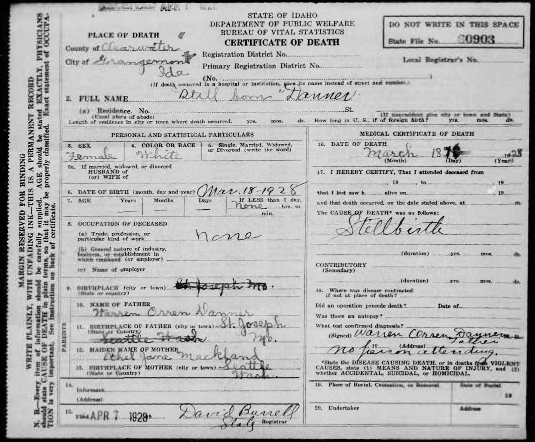 STATE OF IDAHO
DEPARTMENT OF PUBLIC WELFARE
BUREAU OF VITAL STATISTICS
CERTIFICATE OF DEATH
DO NOT WRITE IN THIS SPACE
State File No. 60903
PLACE OF DEATH
County of Clearwater
City of Grangemont
Ida
Registration District No.
Primary Registration District No.
Local Registrar's No.
(No.
(If death occurred in a hospital or institution, give its name instead of street and number.)
2. FULL NAME Still born Danner
(a) Residence. No. St.
(Usual place of abode)
(If nonresident give city or town and State)
Length of residence in city or town where death occurred. yrs. mos. ds. How long in U. S., if of foreign birth? yrs. mos. ds.
PERSONAL AND STATISTICAL PARTICULARS
3. SEX
Female
4. COLOR OR RACE
White
5. Single, Married, Widowed,
or Divorced (write the word)
5a. If married, widowed, or divorced
HUSBAND of
(or) WIFE of
6. DATE OF BIRTH (month, day and year) Mar. 18-1928
7. AGE Years Months Days
If LESS than 1 day,
None hrs. or min.
8. OCCUPATION OF DECEASED
(a) Trade, profession, or
particular kind of work none
(b) General nature of industry,
business, or establishment in
which employed (or employer)
(c) Name of employer
9. BIRTHPLACE (city or town) St. Joseph Mo.
(State or country)
PARENTS
10. NAME OF FATHER
Warren Orren Danner
11. BIRTHPLACE OF FATHER (city or town) St. Joseph
(State or Country) Seattle Wash Mo.
12. MAIDEN NAME OF MOTHER
Ethel Jane Mackland
13. BIRTHPLACE OF MOTHER (city or town) Seattle
(State or Country) Wash.
14. Informant
(Address)
15. Filed APR 7 1928 David Burrell
Registrar
MEDICAL CERTIFICATE OF DEATH
16. DATE OF DEATH
March 18 1928
(Month) (Day) (Year)
17. I HEREBY CERTIFY, That I attended deceased from
, 19 , to , 19
that I last saw h alive on , 19
and that death occurred, on the date stated above, at m.
The CAUSE OF DEATH* was as follows:
Stillbirth
(duration) yrs. mos. ds.
CONTRIBUTORY
(Secondary)
(duration) yrs. mos. ds.
18. Where was disease contracted
if not at place of death?
Did an operation precede death? Date of
Was there an autopsy?
What test confirmed diagnosis?
(Signed) Warren Orren Danner
Father
, 19 (Address) No person attending.
*State the DISEASE CAUSING DEATH, or in deaths from VIOLENT
CAUSES, state (1) MEANS AND NATURE OF INJURY, and (2)
whether ACCIDENTAL, SUICIDAL, or HOMICIDAL.
19. Place of Burial, Cremation, or Removal Date of Burial
19
20. Undertaker Address
MARGIN RESERVED FOR BINDING
WRITE PLAINLY, WITH UNFADING INK—THIS IS A PERMANENT RECORD
N. B.—Every item of information should be carefully supplied. AGE should be stated EXACTLY. PHYSICIANS
should state CAUSE OF DEATH in plain terms, so that it may be properly classified. Exact statement of OCCUPA-
TION is very important. See instruction on back of certificate.